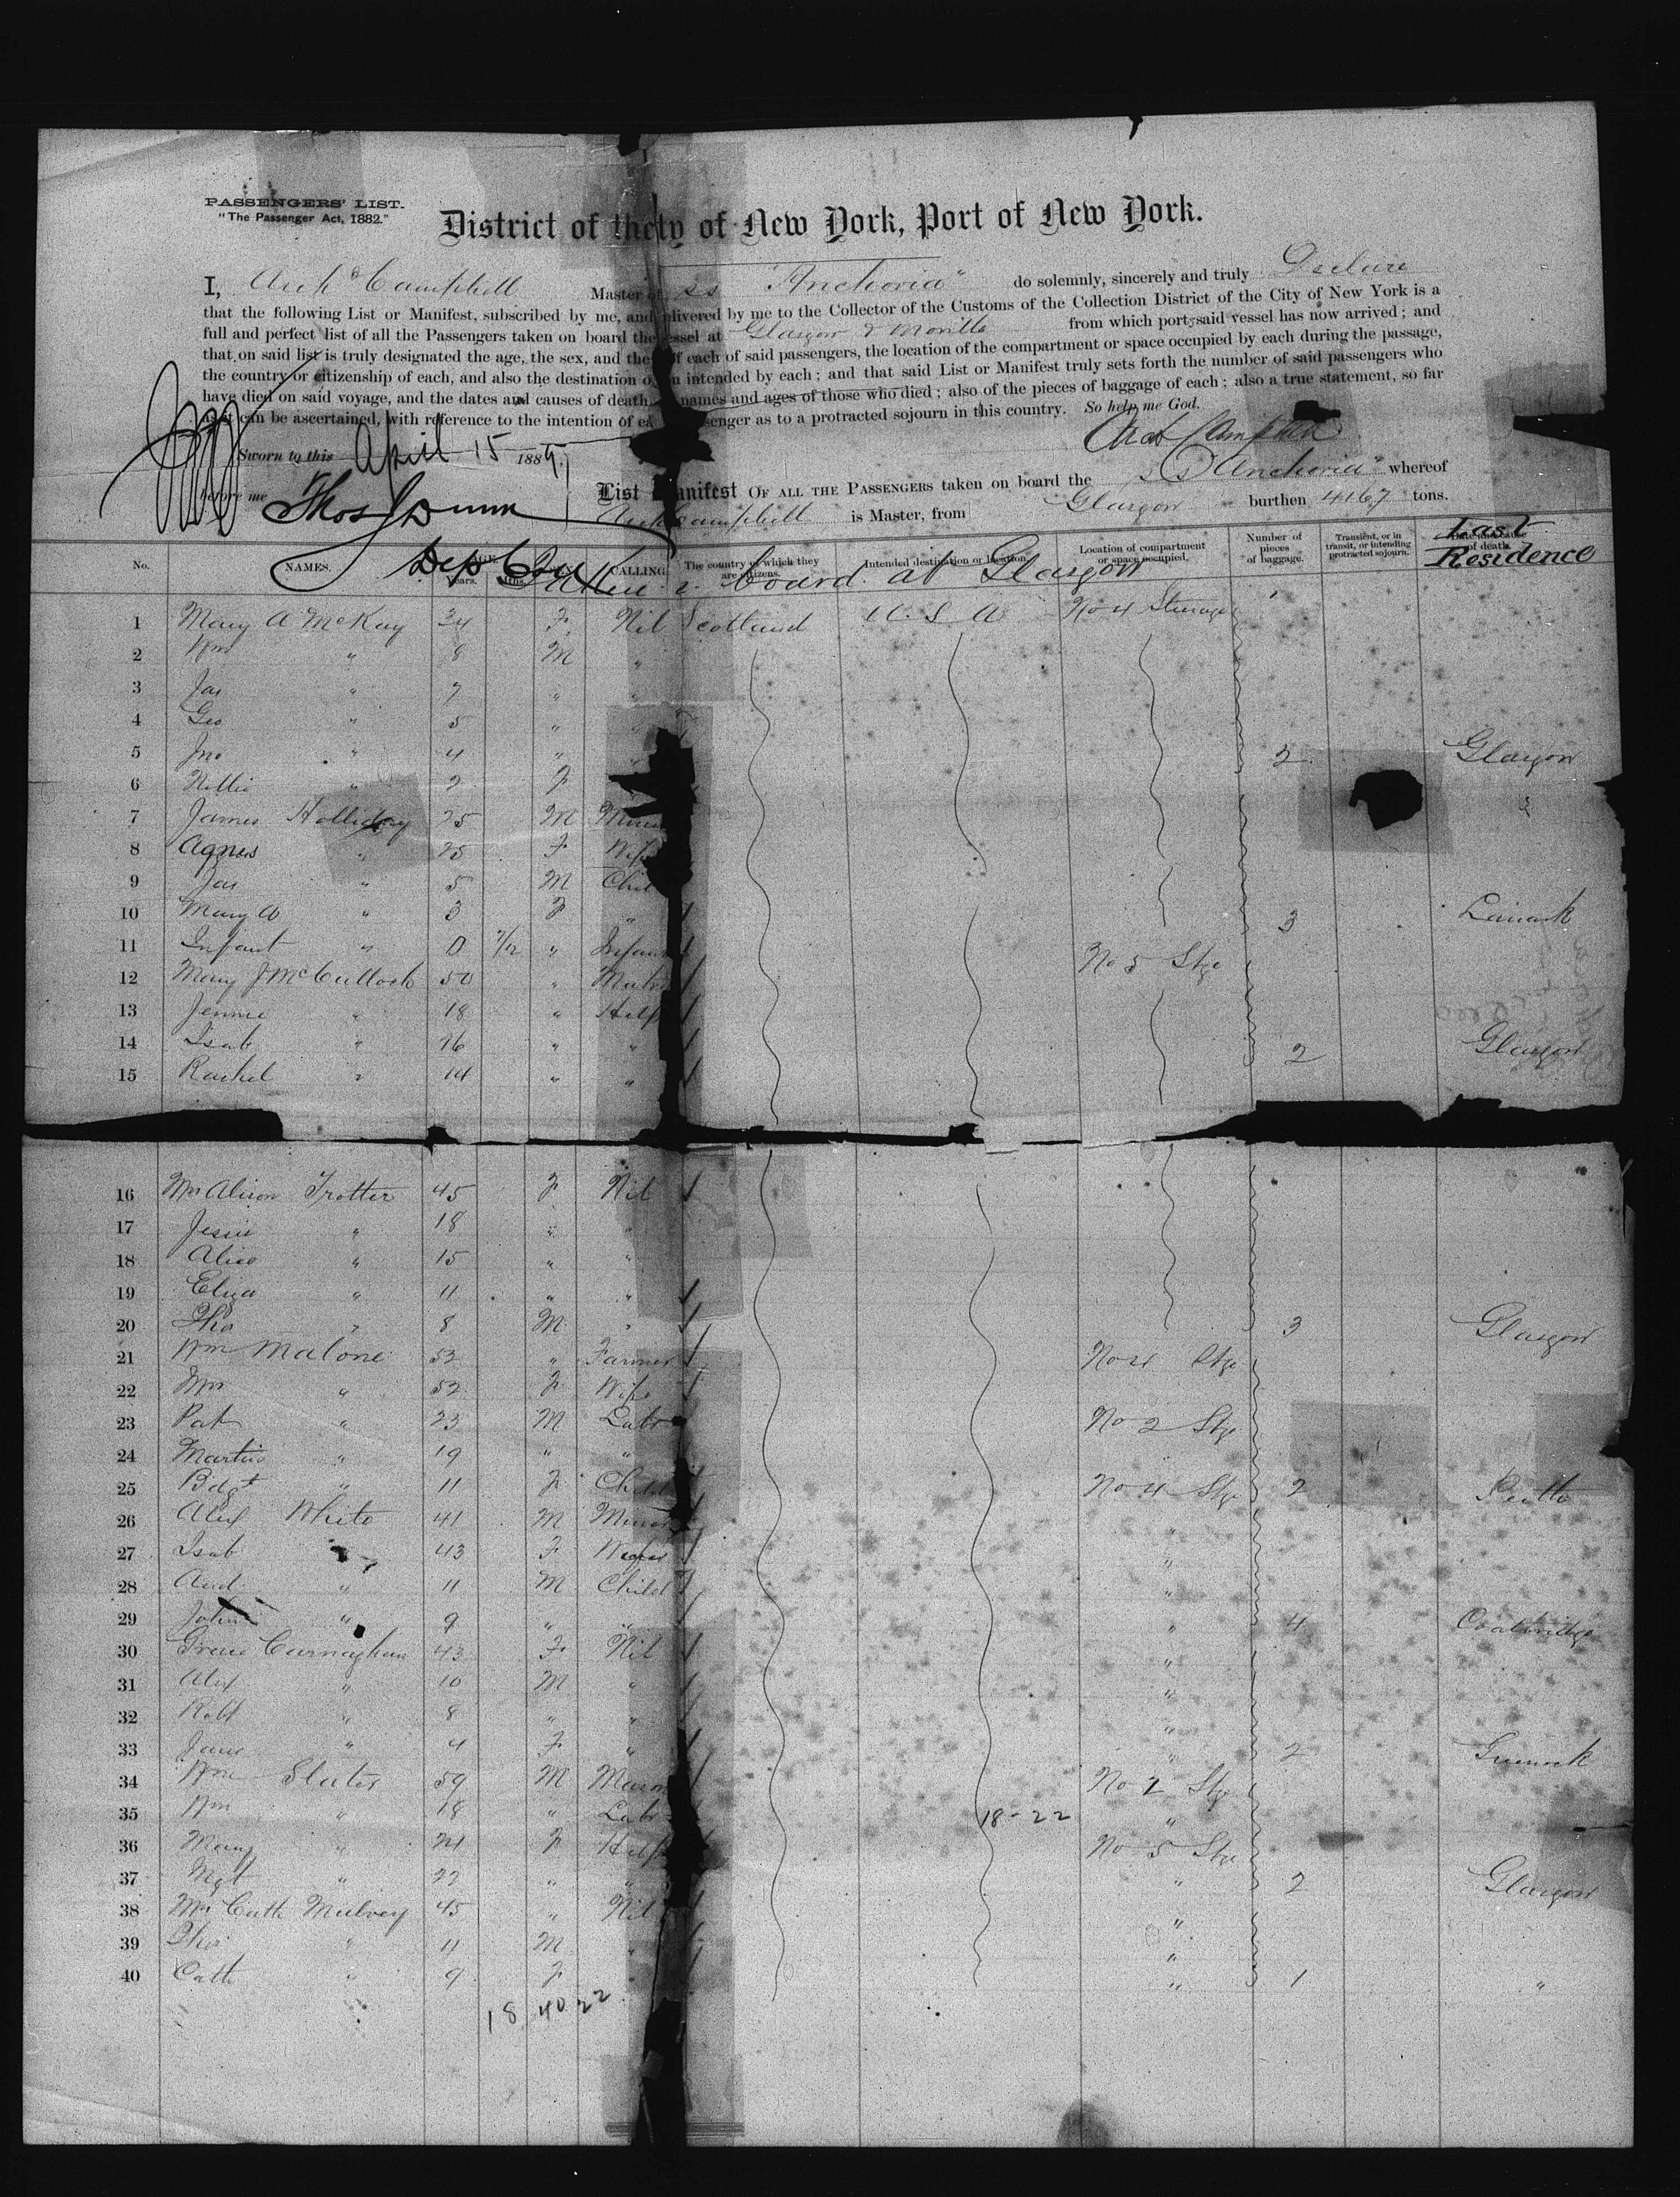 PASSENGERS' LIST.
"The Passenger Act, 1882."
District of the ty of New York, Port of New York.
I, Archd Campbell Master of SS "Anchoria" do solemnly, sincerely and truly Declare
that the following List or Manifest, subscribed by me, and delivered by me to the Collector of the Customs of the Collection District of the City of New York is a
full and perfect list of all the Passengers taken on board the vessel at Glasgow & Moville from which port said vessel has now arrived; and
that on said list is truly designated the age, the sex, and the of each of said passengers, the location of the compartment or space occupied by each during the passage,
the country or citizenship of each, and also the destination or intended by each; and that said List or Manifest truly sets forth the number of said passengers who
have died on said voyage, and the dates and causes of death, names and ages of those who died; also of the pieces of baggage of each; also a true statement, so far
as it can be ascertained, with reference to the intention of each passenger as to a protracted sojourn in this country. So help me God.
Arch Campbell
Sworn to this April 15 1889
before me Thos J Dunn
Dep Col
List Manifest OF ALL THE PASSENGERS taken on board the SS "Anchoria" whereof
Arch Campbell is Master, from Glasgow burthen 4167 tons.
No. NAMES. AGE Years. Mths. CALLING. The country of which they are citizens. Intended destination or location. Location of compartment or space occupied. Number of pieces of baggage. Transient, or in transit, or intending protracted sojourn. Date and cause of death. Last Residence
Taken on board at Glasgow
1 Mary A McKay 34 F Nil Scotland U.S.A No 4 Steerage
2 Wm " 8 M "
3 Jas " 7 " "
4 Geo " 5 " "
5 Jno " 4 " " 2 Glasgow
6 Nellie " 2 F
7 James Holliday 25 M Miner
8 Agnes " 25 F Wife
9 Jas " 5 M Child
10 Mary A " 3 F " 3 Lanark
11 Infant " 0 7/12 " Infant No 5 Stge
12 Mary J McCulloch 50 " Matron
13 Jennie " 18 " Help
14 Isab " 16 " " 2 Glasgow
15 Rachel " 14 " "
16 Mrs Alison Trotter 45 F Nil
17 Jessie " 18 " "
18 Alice " 15 " "
19 Eliza " 11 " "
20 Tho " 8 M " 3 Glasgow
21 Wm Malone 52 " Farmer No 4 Stge
22 Mrs " 52 F Wife
23 Pat " 23 M Labr No 2 Stge
24 Martin " 19 " "
25 Bdgt " 11 F Child No 4 Stge 2
26 Alex White 41 M Miner "
27 Isab " 43 F Wife "
28 And " 11 M Child "
29 John " 9 " " " 4 Coatbridge
30 Grace Carnaghan 43 F Nil "
31 Alex " 10 M " "
32 Robt " 8 " " "
33 Jane " 4 F " " 2 Greenock
34 Wm Slater 59 M Mason No 2 Stge
35 Wm " 18 " Labr 18-22 "
36 Mary " 24 F Help No 5 Stge
37 Mgt " 22 " " " 2 Glasgow
38 Mrs Cath Mulvey 45 " Nil "
39 Tho " 11 M " "
40 Cath " 9 F " " 1 "
18 40 22